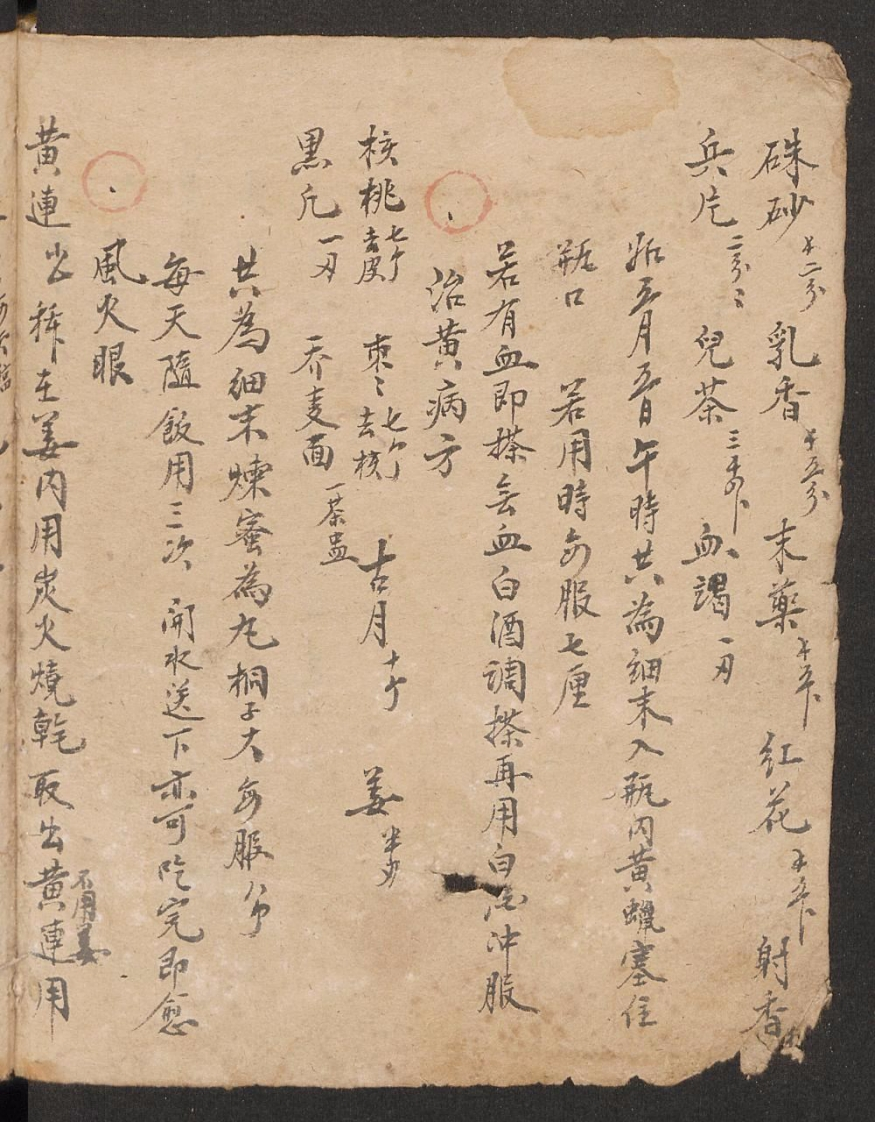 硃砂 乳香 末藥 紅花 射香
兵片二分 兒茶 血竭一刃
五月五日午時共為細末入瓶內黃蠟塞住
瓶口 若用時每服七厘
若有血即搽無血白酒調搽再用白酒冲服
治黃病方
核桃七个去皮 枣七个去核 古月十个 姜
黑凡一刃 乔麦面一茶盅
共為細末煉蜜為丸桐子大每服
每天隨飯用三次 開水送下亦可吃完即愈
風火眼
黃連 姜內用炭火燒乾取出黃連用
不用姜